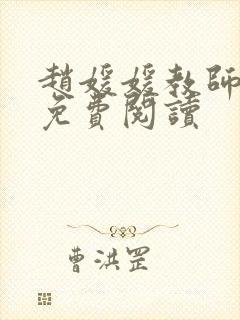 趙媛媛教師
免費閱讀
曹洪罡